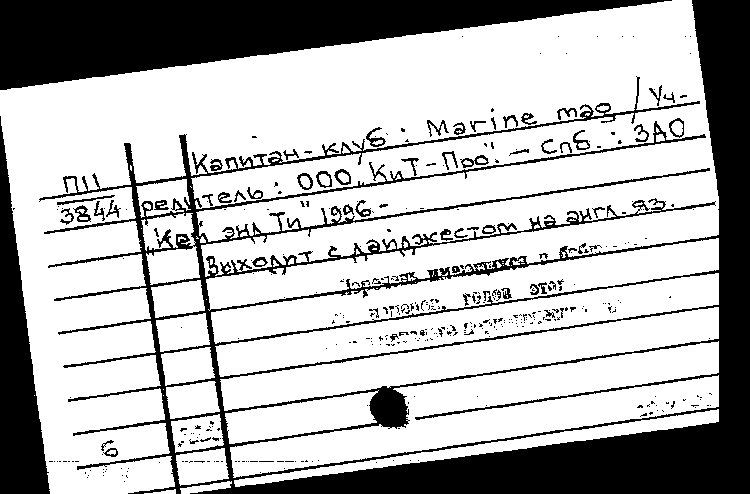 Капитан-клуб : Marine mag / Уч-
П11
3844 редитель : ООО „КиТ-Про". - Спб. : ЗАО
„Кей энд Ти", 1996 -
Выходит с дайджестом на англ. яз.
Перечень имеющихся в
годов этог
6